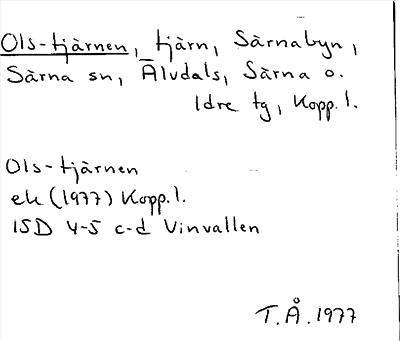 Ols-tjärnen, tjärn, Särnabyn,
Särna sn, Älvdals, Särna o.
Idre tg, Kopp.l.
Ols-tjärnen
ek (1977) Kopp.l.
15D 4-5 c-d Vinvallen
T.Å. 1977